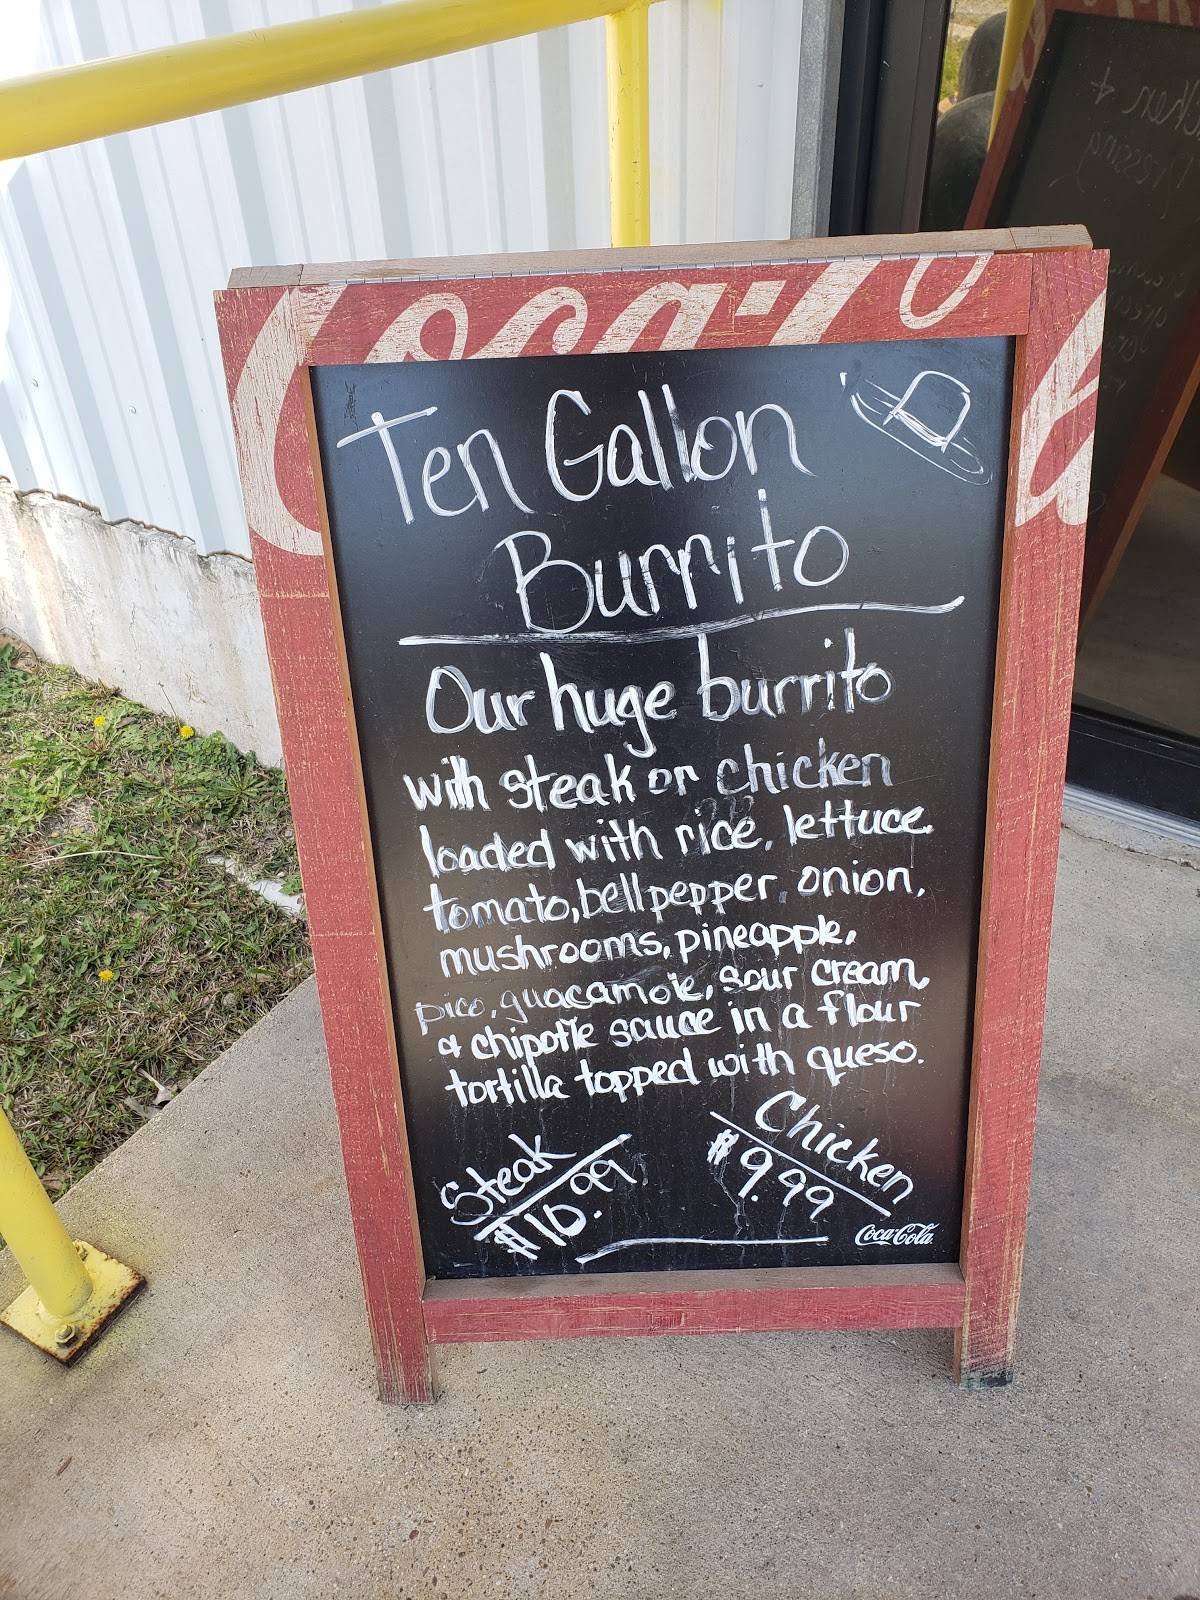 Coca-Co
Ten Gallon
Burrito
Our huge burrito
with steak or chicken
loaded with rice, lettuce,
tomato, bell pepper, onion,
mushrooms, pineapple,
pico, guacamole, sour cream,
& chipotle sauce in a flour
tortilla topped with queso.
Steak
$10.99
Chicken
$9.99
Coca-Cola